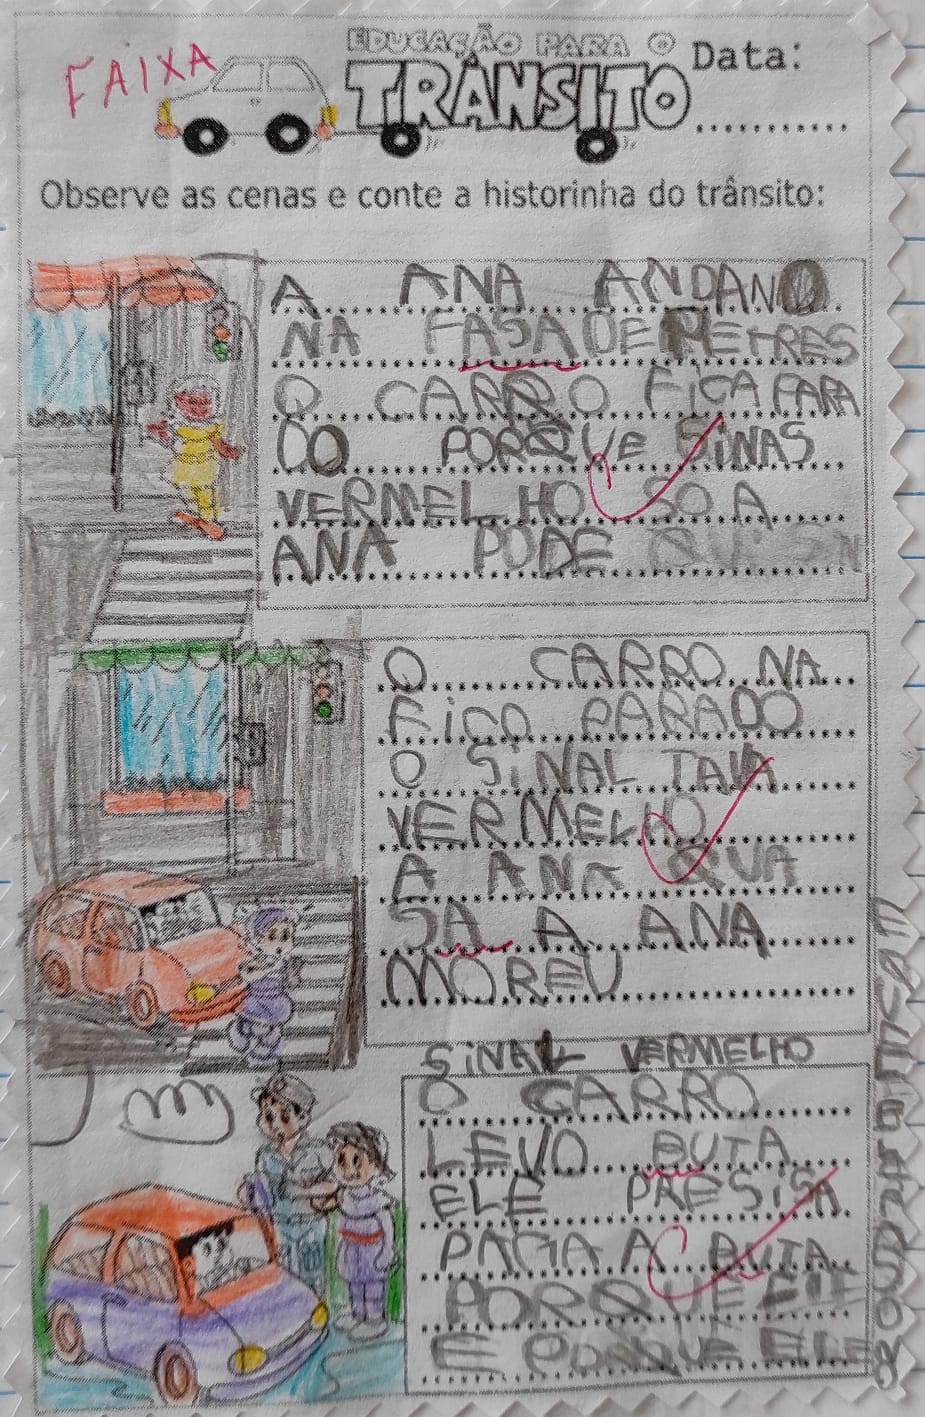 FAIXA
EDUCAÇÃO PARA O
TRÂNSITO
Data:
Observe as cenas e conte a historinha do trânsito:
A ANA ANDANO
NA FASA DE PETRES
O CARRO FICA PARA
DO PORQUE SINAS
VERMELHO SO A
ANA PODE
O CARRO NA
FICO PARADO
O SINAL TAVA
VERMELHO
A ANA QUA
SA A ANA
MOREU
SINAL VERMELHO
O CARRO
LEVO BUTA
ELE PRESISA
PAGA A BUTA
PORQUE ELE
E PORQUE ELE